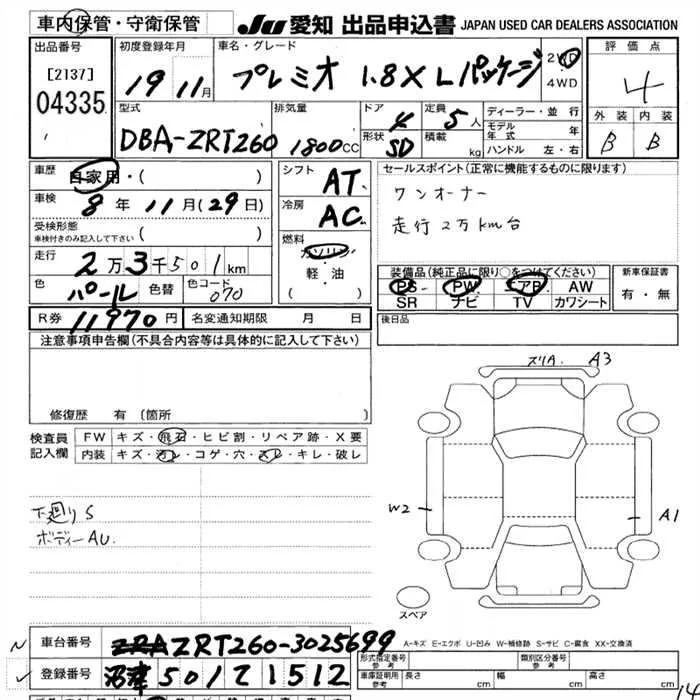 車内保管・守衛保管 JU 愛知 出品申込書 JAPAN USED CAR DEALERS ASSOCIATION
出品番号 初度登録年月 車名・グレード 評価点
[2137] 04335 19 11月 プレミオ 1.8X Lパッケージ 2WD 4WD 4
型式 排気量 ドア 4 定員 5人 ディーラー・並行 外装 内装
DBA-ZRT260 1800cc 形状 SD 積載 kg モデル年式 年 ハンドル 左・右 B B
車歴 自家用・( ) シフト AT セールスポイント(正常に機能するものに限ります)
車検 8年 11月(29日) 冷房 AC ワンオーナー
受検形態 車検付きのみ記入して下さい ( ) 燃料 ガソリン 走行2万km台
走行 2万3千501km 軽・油 装備品(純正品に限り○をつけてください) 新車保証書
色 パール 色替 色コード 070 ( ) PS PW エアB AW 有・無
SR ナビ TV カワシート
R券 11970円 名変通知期限 月 日 後日品
注意事項申告欄(不具合内容等は具体的に記入して下さい)
ズリA A3
修復歴 有 (箇所
検査員記入欄 FW キズ・飛石・ヒビ割・リペア跡・X要
内装 キズ・汚レ・コゲ・穴・スレ・キレ・破レ
W2 A1
下廻りS
ボディーAU.
スペア
N 車台番号 ZRA ZRT260-3025699 A-キズ E-エクボ U-凹み W-補修跡 S-サビ C-腐食 XX-交換済
登録番号 沼津 501 て 1512 形式指定番号 参考 類別区分番号 参考
車庫証明用 参考 長さ cm 幅 cm 高さ cm
14